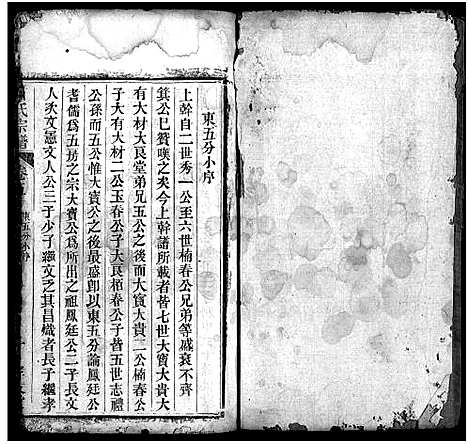 東五分小序
上幹自二世秀一公至六世楠春公兄弟等盛衰不齊
箕公巳贊嘆之矣今上譜所載者皆七世大寳大貴大
有大材大良堂弟兄五公之後而大寳大貴二公楠春公
子大有大材二公玉春公子大良栢春公子皆五世志禮
公孫而五公惟大寳公之後最盛卽以東五分論鳳廷公
耆儒爲五房之宗大寳公爲所出之祖鳳廷公二子長文
人次文憲文人公三子少子繼文乏其昌熾者長子繼孝
氏宗譜
東五分小序